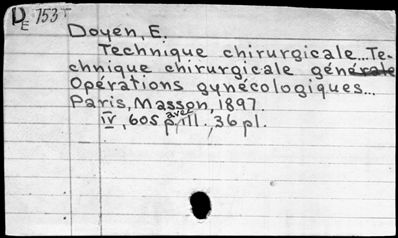 DE 753T
Doyen, E.
Technique chirurgicale... Te-
chnique chirurgicale générale
Opérations gynécologiques...
Paris, Masson, 1897.
IV, 605 p. avec ill., 36 pl.